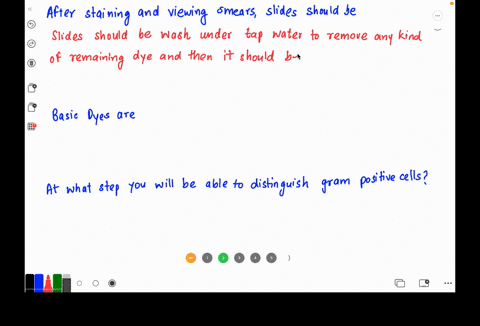 After staining and viewing smears, slides should be
Slides should be wash under tap water to remove any kind
of remaining dye and then it should b
Basic Dyes are
At what step you will be able to distinguish gram positive cells?